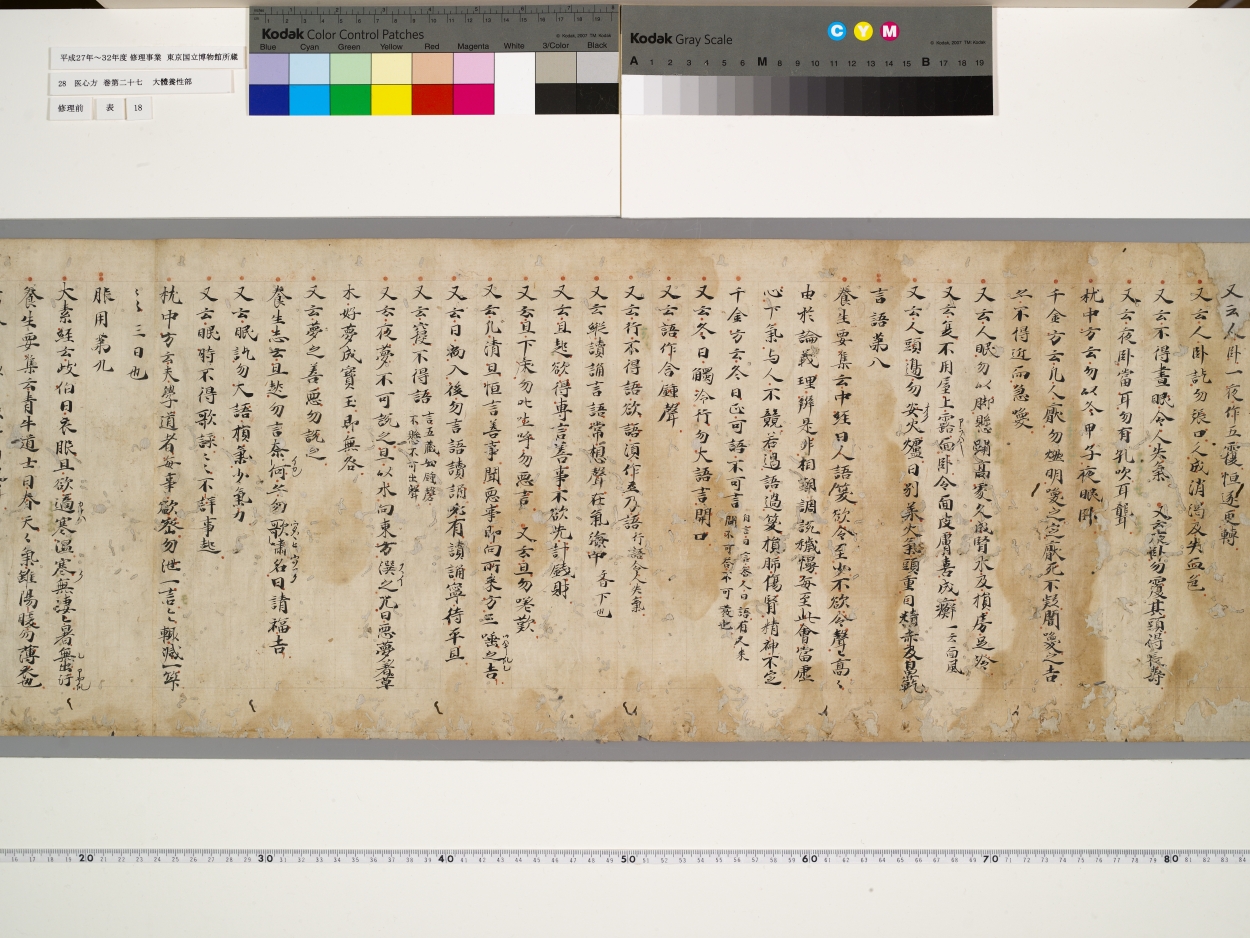 平成27年～32年度 修理事業 東京国立博物館所蔵
28 医心方 巻第二十七 大體養性部
修理前 表 18
Kodak Color Control Patches
Blue Cyan Green Yellow Red Magenta White 3/Color Black
Kodak Gray Scale
C Y M
A 1 2 3 4 5 6 M 8 9 10 11 12 13 14 15 B 17 18 19
又云人卧一夜作五覆恒逐更轉
又云人卧訖勿張口久成消渴及失血色
又云不得晝眠令人失氣 又云夜卧勿覆其頭得長壽
又云夜卧當耳勿有孔吹耳聾
枕中方云勿以冬甲子夜眠卧
千金方云凡人厭勿燃明喚之定厭死不疑闇喚之吉
亦不得近而急喚
又云人眠勿以脚懸蹋高處久成腎水及損房足冷
又云夏不用屋上露面卧令面皮膚喜成癬 一云面風
又云人頭邊勿安火爐日別承火氣頭重目精赤及鼻乾
言語第八
養生要集云中經曰人語笑欲令至少不欲令聲高々
由於論義理辨是非相嘲調説穢慢每至此會當虛
心下氣与人不競若過語過笑損肺傷腎精神不定
千金方云冬日正可語不可言 自言曰言答人曰語有人來問不可不答不可發也
又云冬日觸冷行勿大語言開口
又云語作含鍾聲
又云行不得語欲語須作立乃語 行語令人失氣
又云䛀讀誦言語常想聲在氣海中 齊下也
又云旦起欲得專言善事不欲先計錢財
又云旦下床勿叱吐呼勿悪言 又云旦勿嗟歎
又云凡清旦恒言善事聞悪事即向所来方三唾之吉
又云日初入後勿言語讀誦必有讀誦寧待平旦
又云寢不得語 言五藏如鍾磬不懸不可出聲
又云夜夢不可説之旦以水向東方潠之咒曰悪夢著草
木好夢成寶玉即無咎
又云夢之善悪勿説之
養生志云旦起勿言奈何亦勿歌嘯名曰請福吉
又云眠訖勿大語損氣少氣力
又云眠時不得歌詠々々不詳事起
枕中方云夫學道者每事欲密勿泄一言々輒減一筭
々々三日也
服用第九
大素經云岐伯曰衣服且欲適寒温寒無凄々暑無出汗
養生要集云青牛道士曰春天々氣雖陽暖勿薄衣也
20 30 40 50 60 70 80